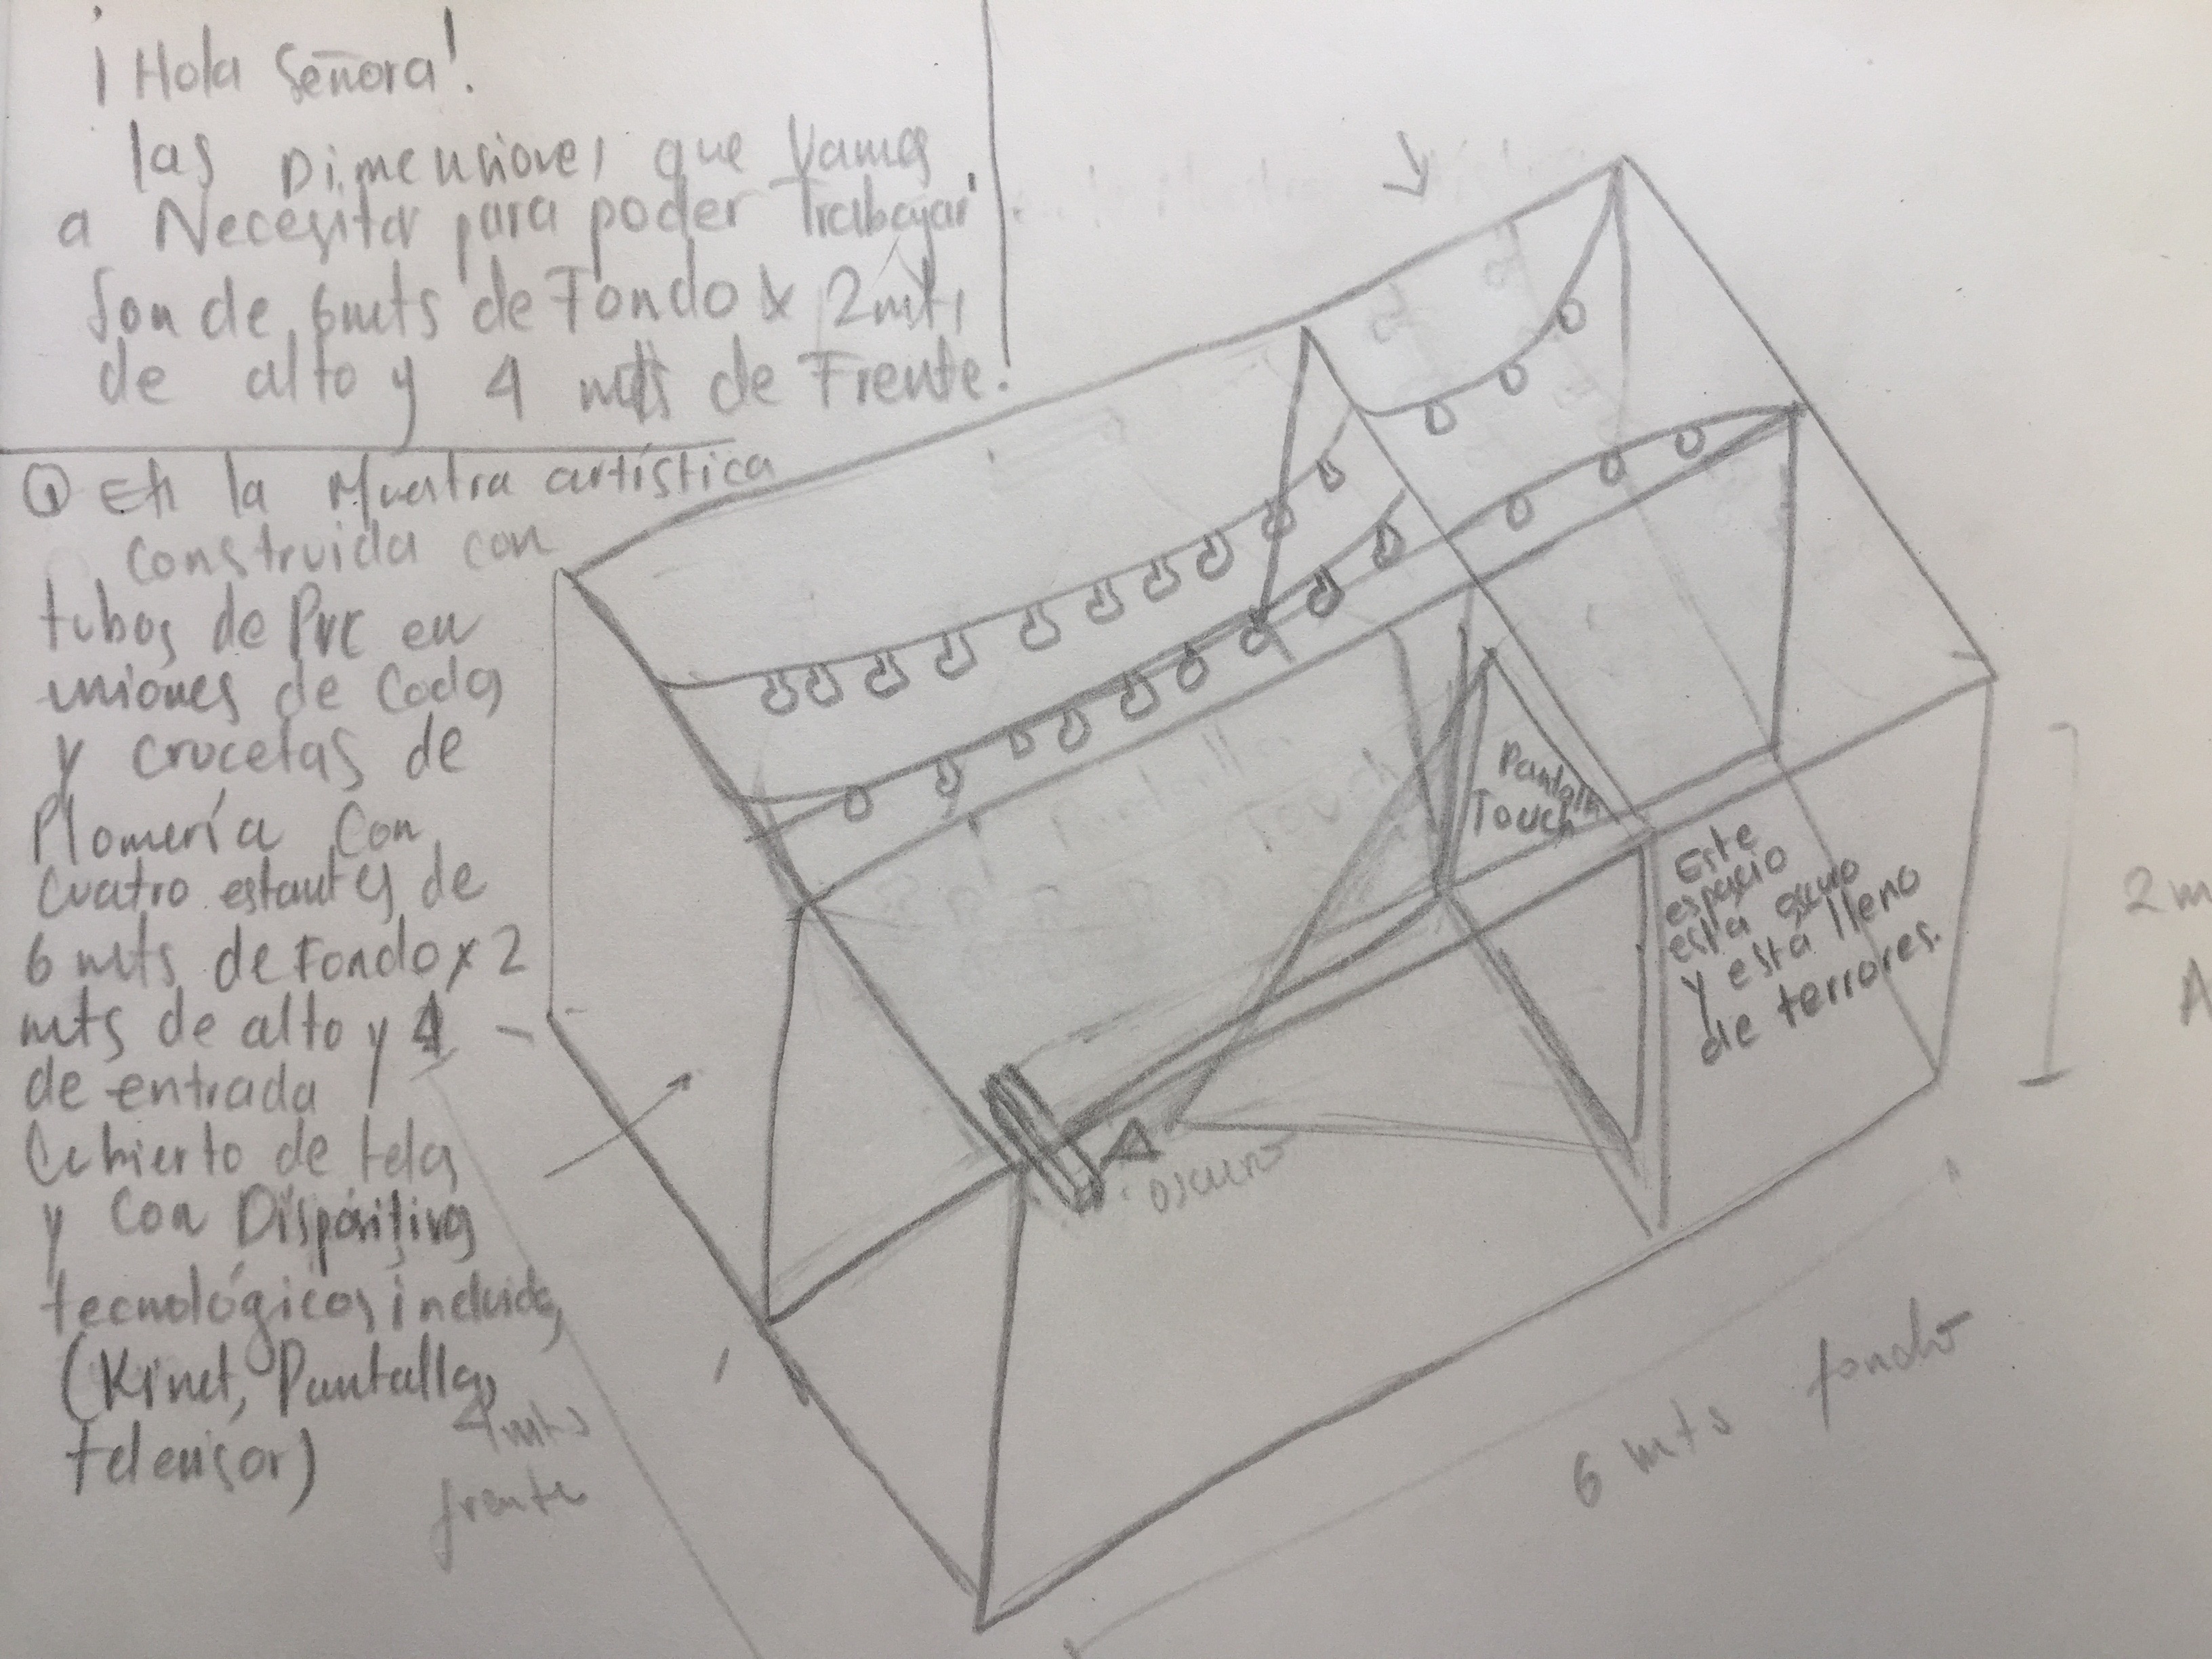 ¡Hola Señora!
las Dimensiones que Vamos
a Necesitar para poder Trabajar
Son de 6mts de Fondo x 2mts
de alto y 4 mts de Frente.
① En la Muestra artística
construida con
tubos de PVC en
uniones de Codos
y crucetas de
Plomería Con
Cuatro estantes de
6 mts de Fondo x 2
mts de alto y 4
de entrada
Cubierto de telas
y con Dispositivos
tecnológicos incluidos
(Kinet, Pantallas,
televisor)
4 mts
frente
Pantalla
Touch
Este
espacio
esta
y esta lleno
de terrores.
oscuro
2m
A
6 mts fondo